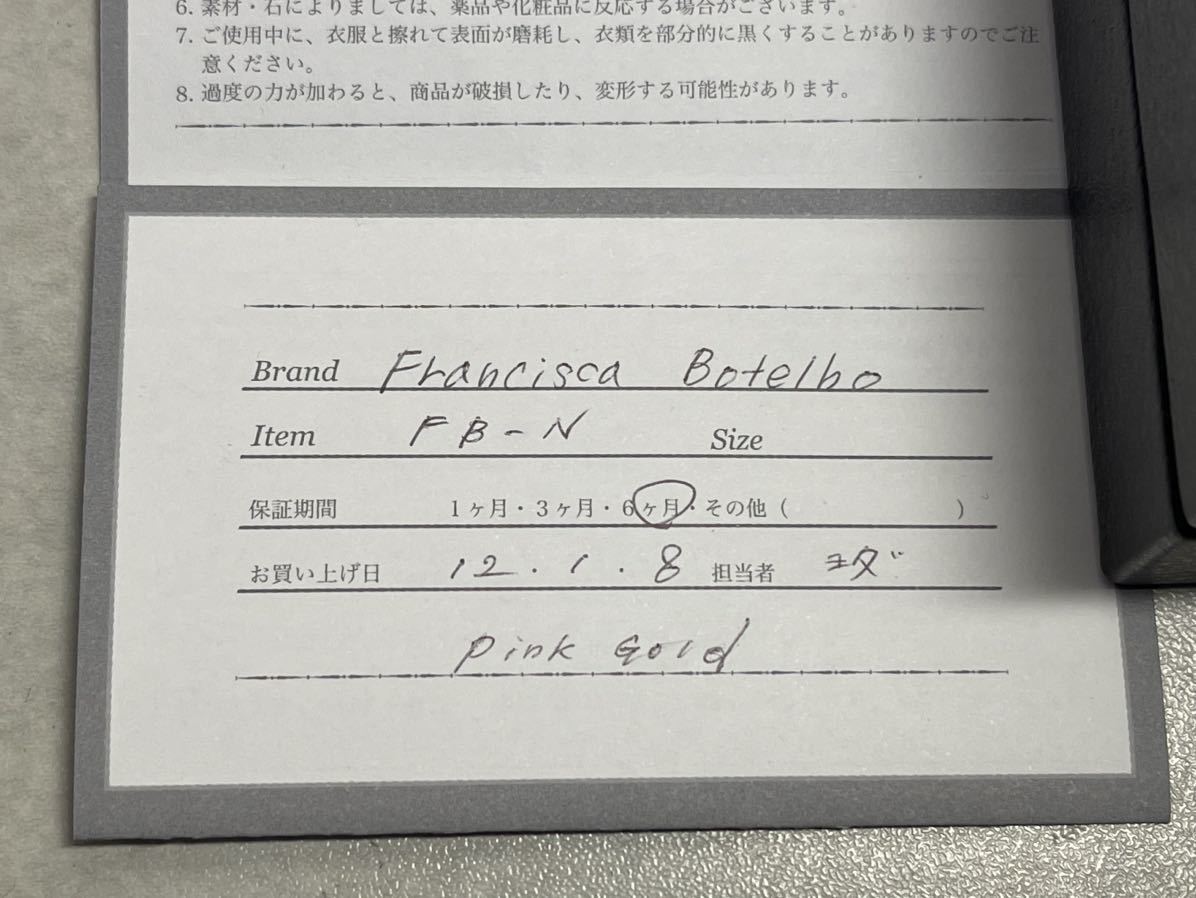 6. 素材・石によりましては、薬品や化粧品に反応する場合がございます。
7. ご使用中に、衣服と擦れて表面が磨耗し、衣類を部分的に黒くすることがありますのでご注
意ください。
8. 過度の力が加わると、商品が破損したり、変形する可能性があります。
Brand Francisca Botelho
Item FB-N Size
保証期間 1ヶ月・3ヶ月・6ヶ月・その他（ ）
お買い上げ日 12.1.8 担当者
Pink Gold